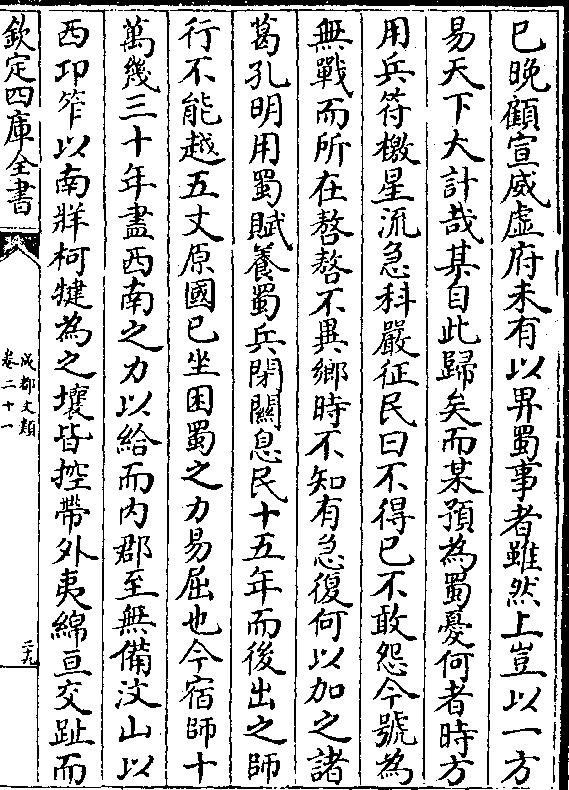 已晚顧宣威虚府未有以畀蜀事者雖然上豈以一方
易天下大計哉某自此歸矣而某預為蜀憂何者時方
用兵符檄星流急科嚴征民曰不得已不敢怨今號為
無戰而所在嗸嗸不異鄉時不知有急復何以加之諸
葛孔明用蜀賦養蜀兵閉關息民十五年而後出之師
行不能越五丈原國已坐困蜀之力易屈也今宿師十
萬幾三十年盡西南之力以給而内郡至無備汶山以
西卭笮以南牂柯犍為之壤皆控帶外夷綿亘交趾而
欽定四庫全書
成都文類
卷二十一
二十九